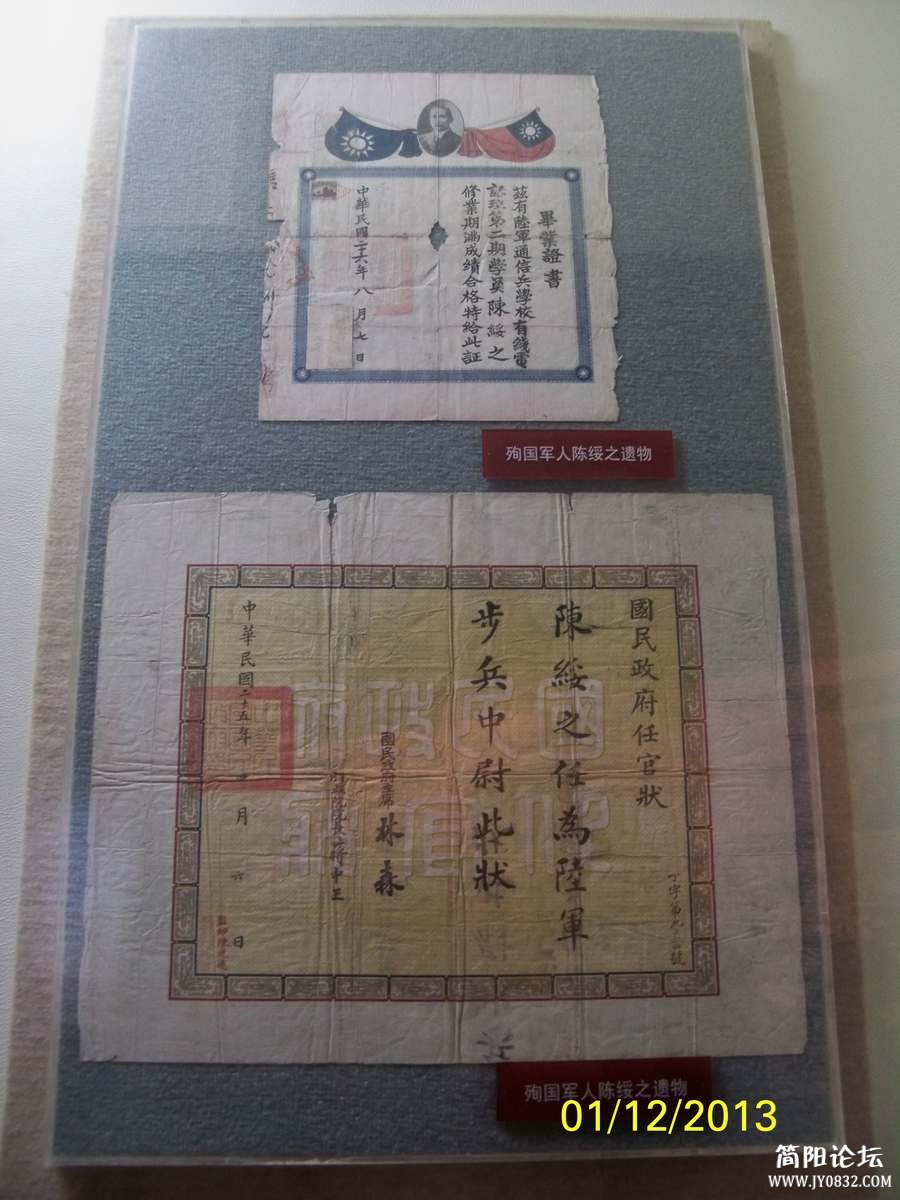 畢業證書
茲有陸軍通信兵學校有綫電
訓班第二期學員陳綏之
修業期滿成績合格特給此証
中華民國二十六年八月七日
殉国军人陈绥之遗物
國民政府任官狀
陳綏之任為陸軍
步兵中尉此狀
國民政府主席 林森
行政院院長 蔣中正
中華民國二十五年 月六日
國民政府
殉国军人陈绥之遗物
01/12/2013
简阳论坛
www.JY0832.com